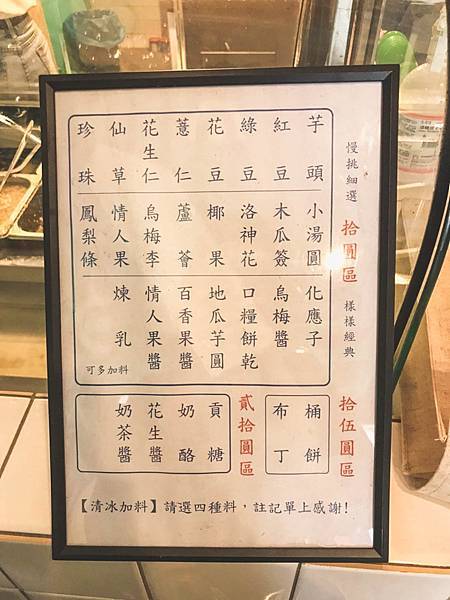 慢挑細選 拾圓區 樣樣經典
芋頭
紅豆
綠豆
花豆
薏仁
花生仁
仙草
珍珠
小湯圓
木瓜簽
洛神花
椰果
蘆薈
烏梅李
情人果
鳳梨條
化應子
烏梅醬
口糧餅乾
地瓜芋圓
百香果醬
情人果醬
煉乳
可多加料
拾伍圓區
桶餅
布丁
貳拾圓區
貢糖
奶酪
花生醬
奶茶醬
【清冰加料】請選四種料，註記單上感謝!